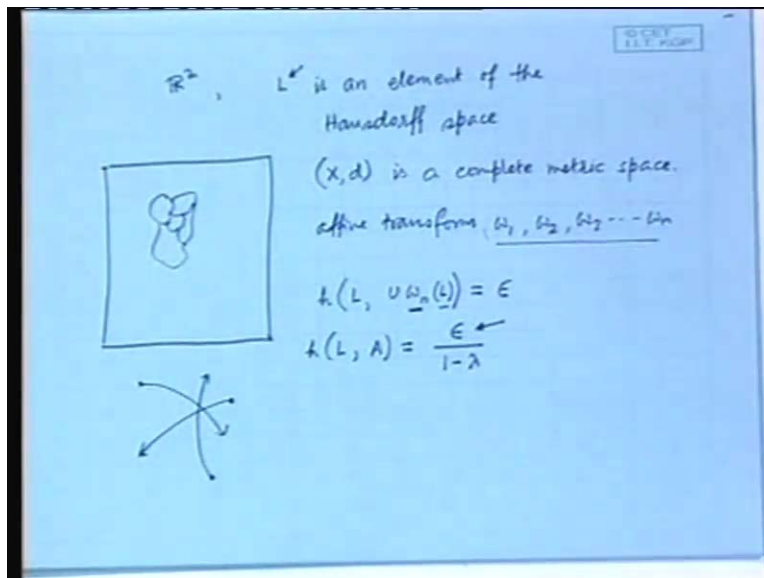 © CET
I.I.T. KGP
ℝ², L is an element of the
Hausdorff space
(X, d) is a complete metric space.
affine transforms, ω₁, ω₂, ω₃ --- ωₙ
h(L, ∪ωₙ(L)) = ϵ
h(L, A) = ϵ / 1-λ